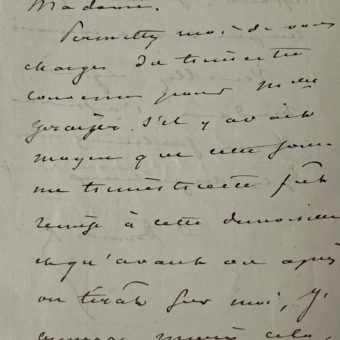 Madame.
Permettez moi de vous
charger du trimestre
convenu pour Melle
S'il y avait
moyen que cette som-
me trimestrielle fût
remise à cette demoiselle
et qu'avant ou après
on tirât sur moi, j'y
cela,